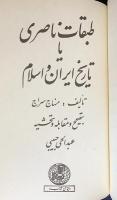 طبقات ناصری
یا
تاریخ ایران و اسلام
تألیف: منهاج سراج
تصحیح و مقابله و تحشیه
عبدالحی حبیبی